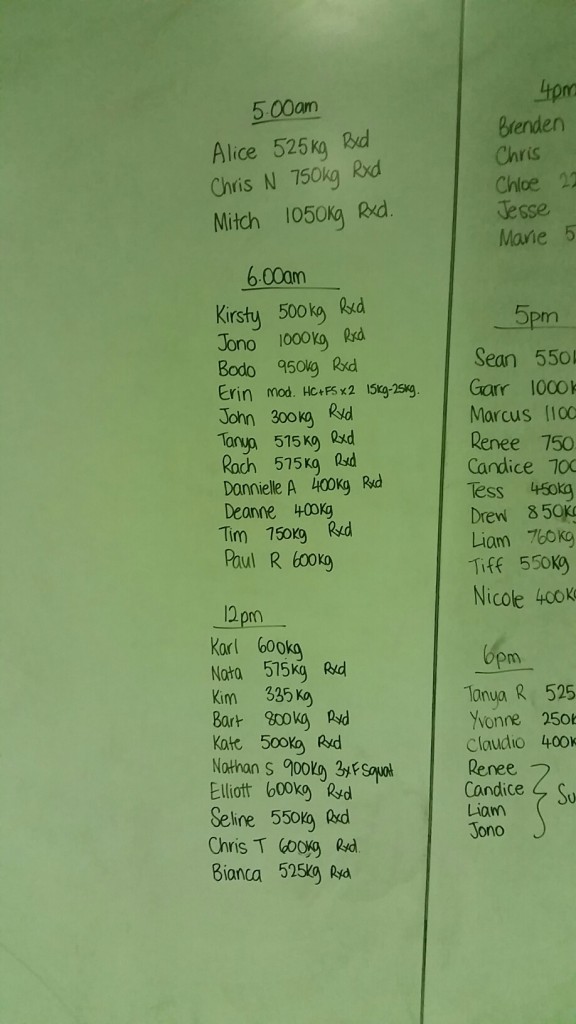 5.00am
Alice 525kg Rxd
Chris N 750kg Rxd
Mitch 1050kg Rxd.
6.00am
Kirsty 500kg Rxd
Jono 1000kg Rxd
Bodo 950kg Rxd
Erin mod. HC+FS x 2 15kg-25kg.
John 300kg Rxd
Tanya 575kg Rxd
Rach 575kg Rxd
Dannielle A 400kg Rxd
Deanne 400kg
Tim 750kg Rxd
Paul R 600kg
12pm
Karl 600kg
Nata 575kg Rxd
Kim 335kg
Bart 800kg Rxd
Kate 500kg Rxd
Nathan S 900kg 3xF Squat
Elliott 600kg Rxd
Seline 550kg Rxd
Chris T 600kg Rxd.
Bianca 525kg Rxd
4pm
Brenden
Chris
Chloe 22
Jesse
Marie 5
5pm
Sean 550k
Garr 1000k
Marcus 1100
Renee 750
Candice 700
Tess 450kg
Drew 850kg
Liam 760kg
Tiff 550kg
Nicole 400kg
6pm
Tanya R 525
Yvonne 250k
Claudio 400k
Renee
Candice
Liam
Jono
Su